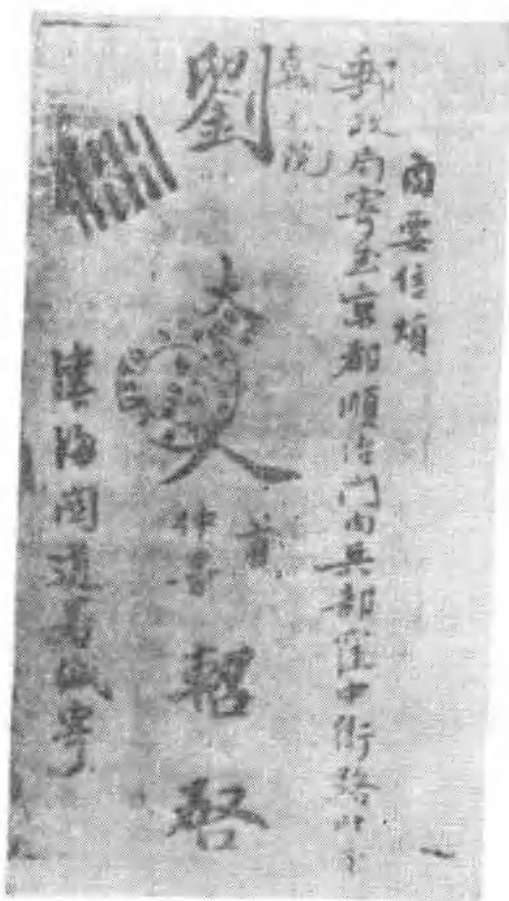 內要信煩
郵政局寄至京都順治門內兵部窪中街路
劉
大人
甫
仲魯
韜啓
津海關道署緘寄